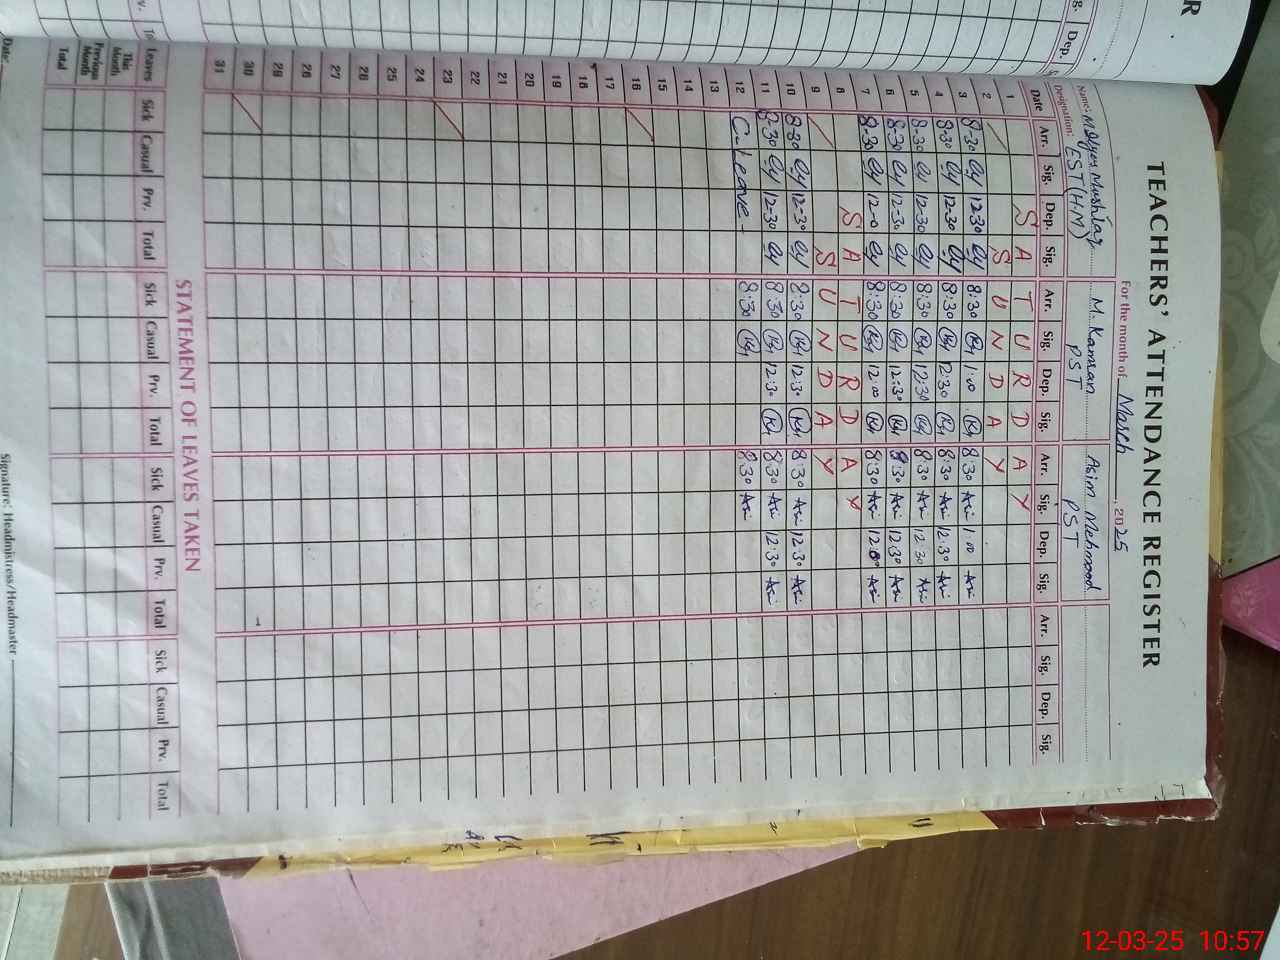 TEACHERS' ATTENDANCE REGISTER
For the month of March, 2025
Name: Mushtaq M. Kamran Asim Mehmood
Designation: EST (H.M) PST PST
Date Arr. Sig. Dep. Sig. Arr. Sig. Dep. Sig. Arr. Sig. Dep. Sig. Arr. Sig. Dep. Sig.
1 S A T U R D A Y
2 S U N D A Y
3 8-30 12-30 8:30 1:00 8:30 1:00
4 8-30 12-30 8:30 12:30 8:30 12:30
5 8-30 12-30 8:30 12:30 8:30 12:30
6 8-30 12-30 8:30 12:30 8:30 12:30
7 8-30 12-0 8:30 12:00 8:30 12:00
8 S A T U R D A Y
9 S U N D A Y
10 8-30 12-30 8:30 12:30 8:30 12:30
11 8-30 12-30 8:30 12:30 8:30 12:30
12 C-Leave- 8:30 8:30
13
14
15
16
17
18
19
20
21
22
23
24
25
26
27
28
29
30
31
STATEMENT OF LEAVES TAKEN
Leaves Sick Casual Prv. Total Sick Casual Prv. Total Sick Casual Prv. Total Sick Casual Prv. Total
This Month
Previous Month
Total
Date:
Signature: Headmistress/Headmaster
R
Dep.
12-03-25 10:57